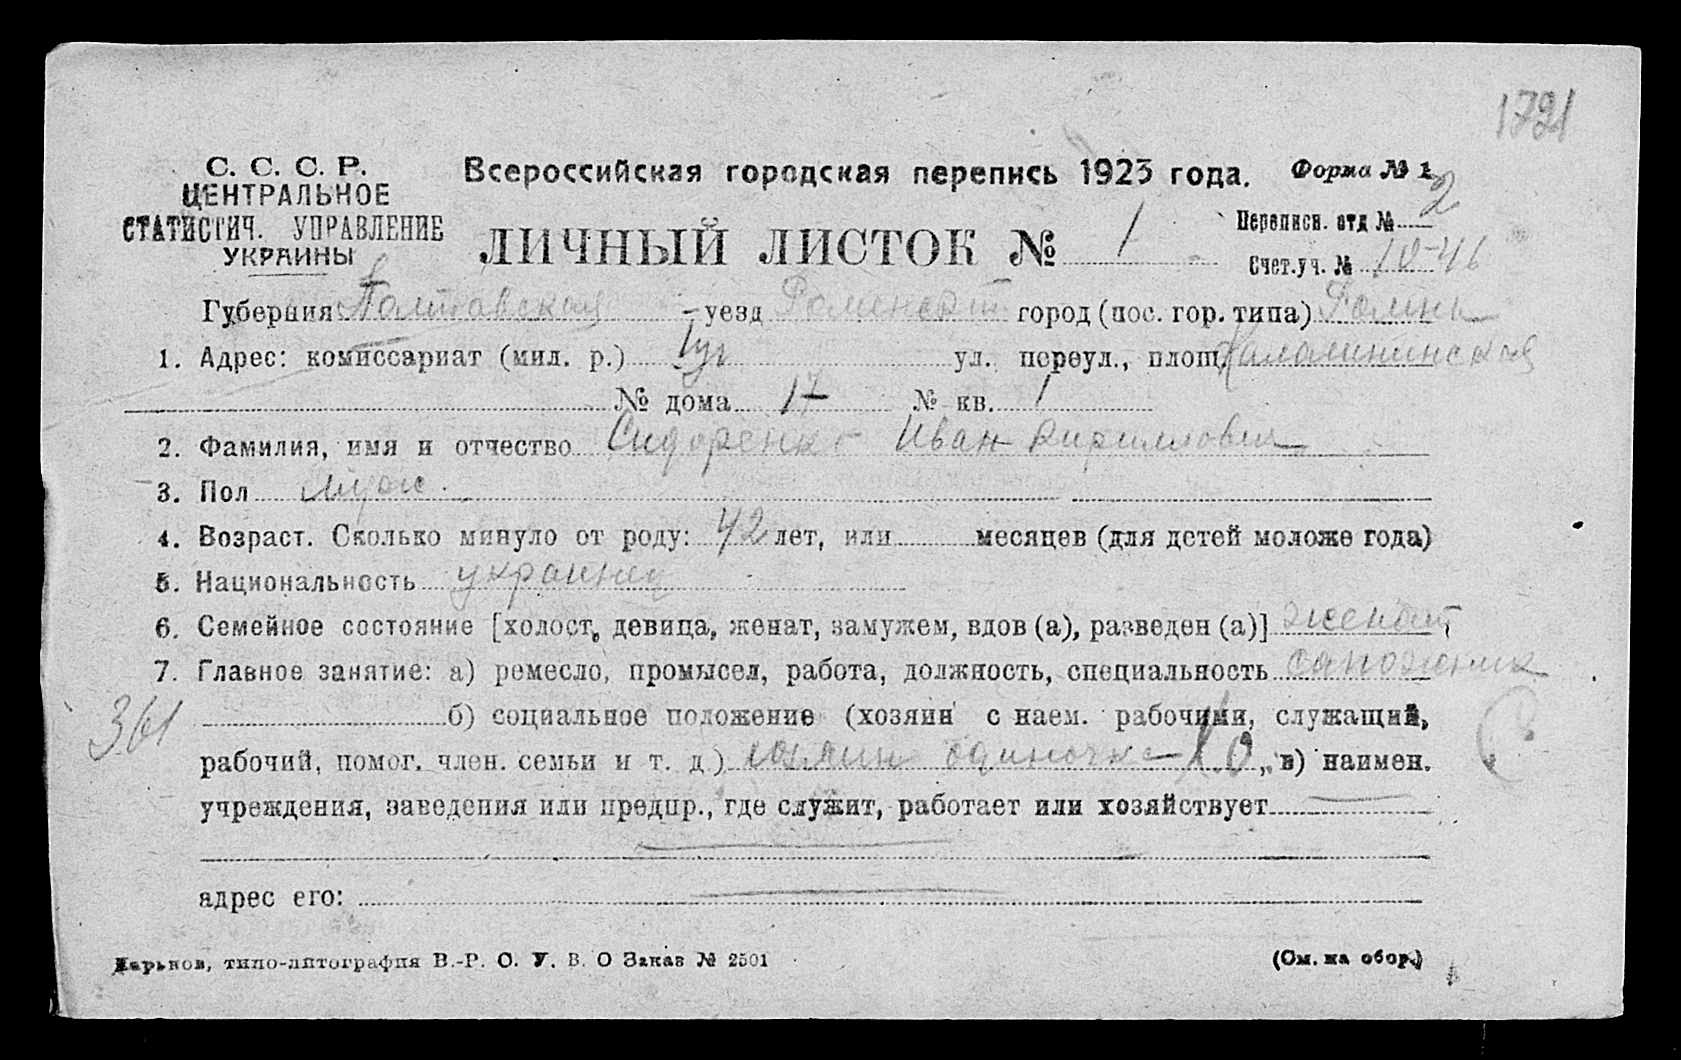 1721
С. С. С. Р.
ЦЕНТРАЛЬНОЕ
СТАТИСТИЧ. УПРАВЛЕНИЕ
УКРАИНЫ
Всероссийская городская перепись 1923 года. Форма № 1
ЛИЧНЫЙ ЛИСТОК № 1
Переписн. отд № 2
Счет.уч. № 10-46
Губерния Полтавская уезд Роменский город (пос. гор. типа) Ромны
1. Адрес: комиссариат (мил. р.) ул. переул., площ.
№ дома 17 № кв. 1
2. Фамилия, имя и отчество Сидоренко Иван Кириллович
3. Пол муж.
4. Возраст. Сколько минуло от роду: 42 лет, или месяцев (для детей моложе года)
5. Национальность украинец
6. Семейное состояние [холост, девица, женат, замужем, вдов (а), разведен (а)] женат
7. Главное занятие: а) ремесло, промысел, работа, должность, специальность сапожник
361
б) социальное положение (хозяин с наем. рабочими, служащий,
рабочий, помог. член. семьи и т. д.) хозяин одиночка „в) наимен.
учреждения, заведения или предпр., где служит, работает или хозяйствует
адрес его:
Харьков, типо-литография В.-Р. О. У. В. О Заказ № 2501
(См. на обор.)